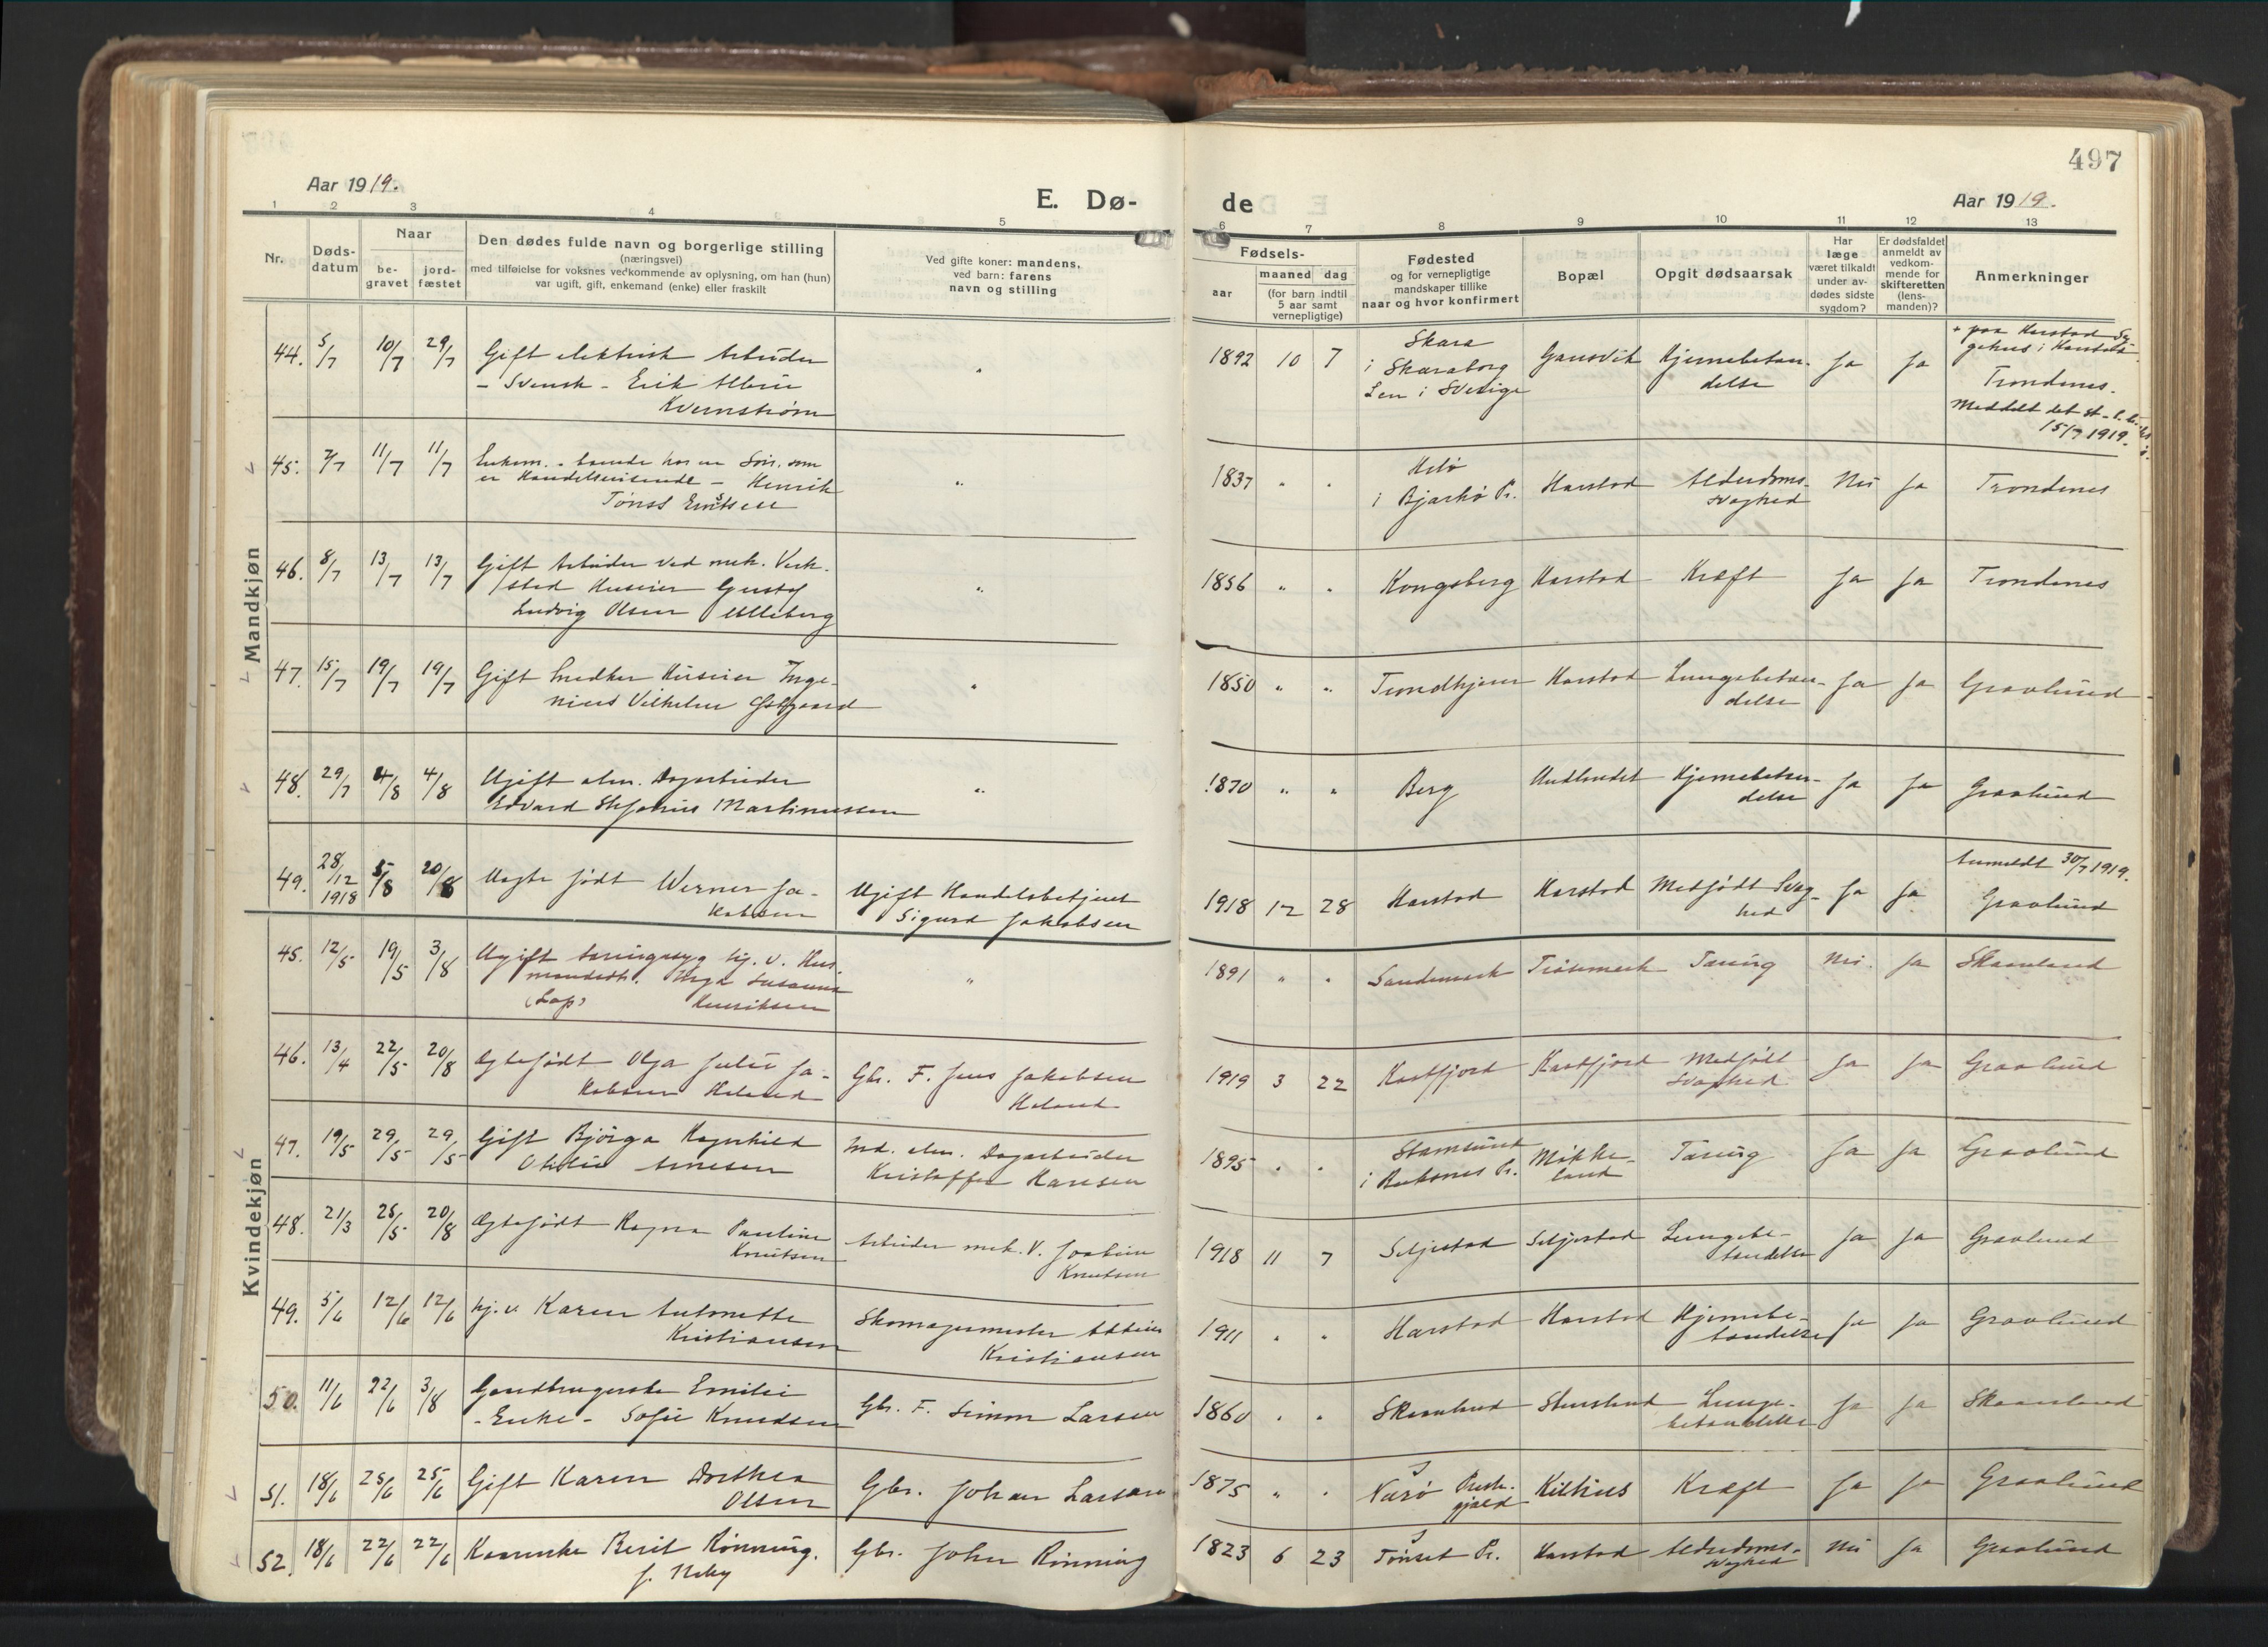 497
Aar 1919.
E. Dø-
de
Aar 1919.
1 2 3 4 5 6 7 8 9 10 11 12 13
Nr.
Døds-
datum
Naar
be-
gravet
jord-
fæstet
Den dødes fulde navn og borgerlige stilling
(næringsvei)
med tilføielse for voksnes vedkommende av oplysning, om han (hun)
var ugift, gift, enkemand (enke) eller fraskilt
Ved gifte koner: mandens,
ved barn: farens
navn og stilling
Fødsels-
aar
maaned dag
(for barn indtil
5 aar samt
vernepligtige)
Fødested
og for vernepligtige
mandskaper tillike
naar og hvor konfirmert
Bopæl
Opgit dødsaarsak
Har
læge
været tilkaldt
under av-
dødes sidste
sygdom?
Er dødsfaldet
anmeldt av
vedkom-
mende for
skifteretten
(lens-
manden)?
Anmerkninger
Mandkjøn
44. 5/7 10/7 29/7 Gift elektrisk Arbeider
- Svensk - Erik
Kvernstrøm
1892 10 7 Skara
i Skaraborg
Len i Sverige
Gansvik Hjernebetæn-
delse
Ja Ja + paa Harstad Sy-
gehus i Harstad
Trondenes.
Meddelt det st.
15/7 1919.
45. 7/7 11/7 11/7 Enkem. - boende hos en Søn, som
er Handelsreisende - Henrik
Tønss Eritsen "
1837 " "
i Bjarkø Pr. Harstad Alderdoms-
svaghed Nei Ja Trondenes
46. 8/7 13/7 13/7 Gift Arbeider ved mek. Verk-
sted Huseier Gustaf
Ludvig Olsen Ulleberg "
1856 " " Kongsberg Harstad Kræft Ja Ja Trondenes
47. 15/7 19/7 19/7 Gift Snedker Huseier Inge-
nius Vilhelm "
1850 " " Trondhjem Harstad Lungebetæn-
delse Ja Ja Gravlund
48. 29/7 4/8 4/8 Ugift alm. Dagarbeider
Edvard Martinussen "
1870 " " Berg Undlandet Hjernebetæn-
delse Ja Ja Gravlund
49. 28/12 1918 5/8 20/8 Uægte født Werner Ja-
kobsen
Ugift Handelsbetjent
Sigurd Jakobsen
1918 12 28 Harstad Harstad Medfødt Svag-
hed Ja Ja Anmeldt 30/7 1919.
Gravlund
Kvindekjøn
45. 12/5 19/5 3/8 Ugift tæringssyg hj. v. Hus-
mandsdt. Inga Susanna
(Lap) Henriksen "
1891 " " Sandemark Tæring Nei. Ja Skaanland
46. 13/4 22/5 20/8 Ægtefødt Olga Julie Ja-
kobsen Holand
Gbr. F. Jens Jakobsen
Holand
1919 3 22 Kasfjord Kasfjord Medfødt
Svaghed Ja Ja Gravlund
47. 19/5 29/5 29/5 Gift Bjørga Ragnhild
Otilie Arnesen
Md. alm. Dagarbeider
Kristoffer Hansen
1895 " " Stamsund
i Buksnes Pr. Møkke-
land Tæring Ja Ja Gravlund
48. 21/3 25/5 20/8 Ægtefødt Ragna Pauline
Knutsen
Arbeider mek. V. Joakim
Knutsen
1918 11 7 Seljestad Seljestad Lungebe-
tændelse Ja Ja Gravlund
49. 5/6 12/6 12/6 hj. v. Karen Antonette
Kristiansen
Skomagermester
Kristiansen
1911 " " Harstad Harstad Hjernebe-
tændelse Ja Ja Gravlund
50. 11/6 22/6 3/8 Gaardbrugerske Emilie
- Enke - Sofie Knudsen
Gbr. F. Simon Larsen
1860 " " Skaanland Lunge-
betændelse Ja Ja Skaanland
51. 18/6 25/6 25/6 Gift Karen Dorthea
Olsen
Gbr. Johan Larsen
1875 " " Nærø Prest-
gjeld Kilhus Kræft Ja Ja Gravlund
52. 18/6 22/6 22/6 Kaarenke Berit Rønning.
f. Neby
Gbr. John Rønning
1823 6 23 Tønset Pr. Harstad Alderdoms-
svaghed Nei Ja Gravlund